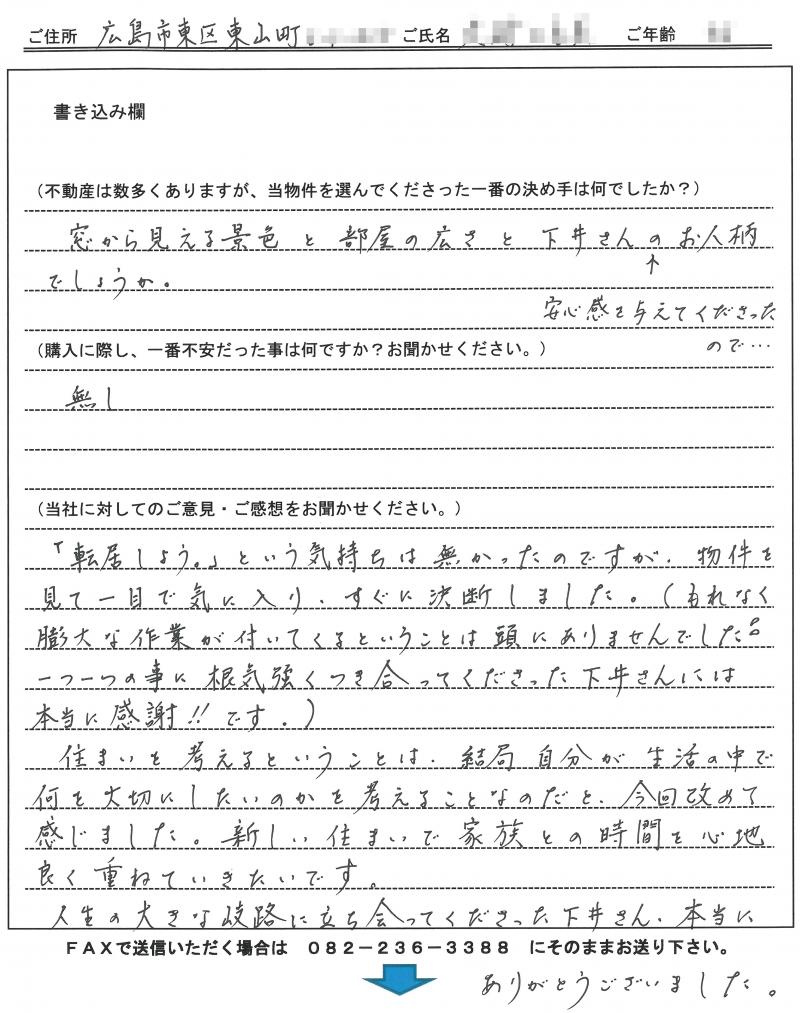 ご住所 広島市東区東山町 ご氏名 ご年齢
書き込み欄
（不動産は数多くありますが、当物件を選んでくださった一番の決め手は何でしたか？）
窓から見える景色と部屋の広さと下井さんのお人柄
でしょうか。
↑
安心感を与えてくださった
ので…
（購入に際し、一番不安だった事は何ですか？お聞かせください。）
無し
（当社に対してのご意見・ご感想をお聞かせください。）
「転居しよう。」という気持ちは無かったのですが、物件を
見て一目で気に入り、すぐに決断しました。（もれなく
膨大な作業が付いてくるということは頭にありませんでした。
一つ一つの事に根気強くつき合ってくださった下井さんには
本当に感謝!!です。）
住まいを考えるということは、結局自分が生活の中で
何を大切にしたいのかを考えることなのだと、今回改めて
感じました。新しい住まいで家族との時間を心地
良く重ねていきたいです。
人生の大きな岐路に立ち会ってくださった下井さん、本当に
ありがとうございました。
ＦＡＸで送信いただく場合は ０８２－２３６－３３８８ にそのままお送り下さい。